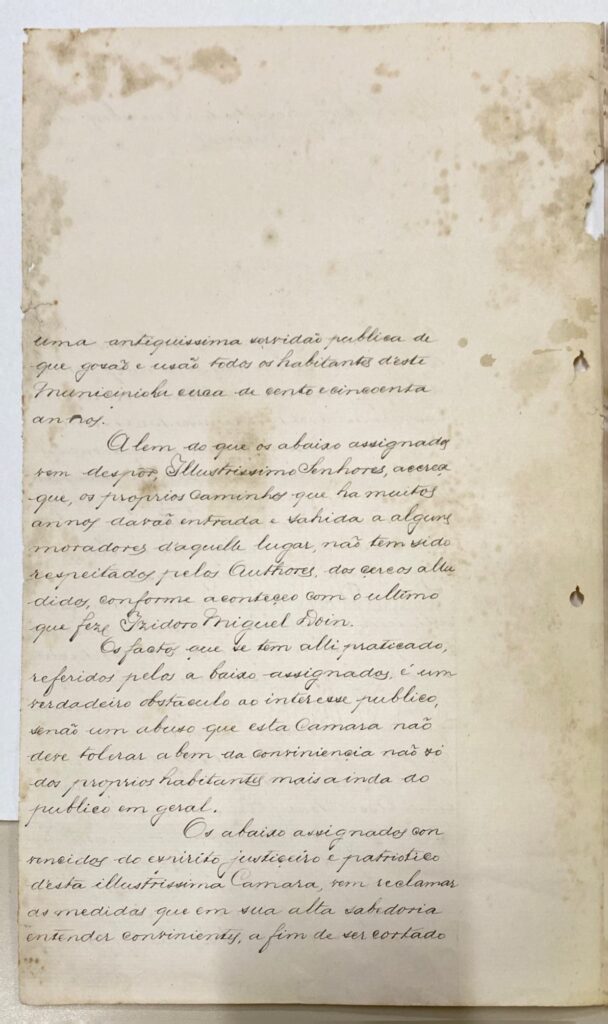 uma antiquissima servidão publica de
que gosão e usão todos os habitantes d'este
Municipio ha cerca de cento e cincoenta
annos.
Alem do que os abaixo assignados
vem despor, Illustrissimo Senhores, acerca
que, os proprios caminhos que ha muitos
annos davão entrada e sahida a alguns
moradores d'aquelle lugar, não tem sido
respeitados pelos Authores, dos cercos allu
didos, conforme aconteçeo com o ultimo
que feze Izidoro Miguel Doin.
Os factos que se tem alli praticado,
referidos pelos a baixo assignados, é um
verdadeiro obstaculo ao interesse publico,
senão um abuso que esta Camara não
deve tolerar a bem da conviniencia não só
dos proprios habitantes mais ainda do
publico em geral.
Os abaixo assignados con
vencidos do espirito justiceiro e patriotico
d'esta illustrissima Camara, vem reclamar
as medidas que em sua alta sabedoria
entender convinientes, a fim de ser cortado